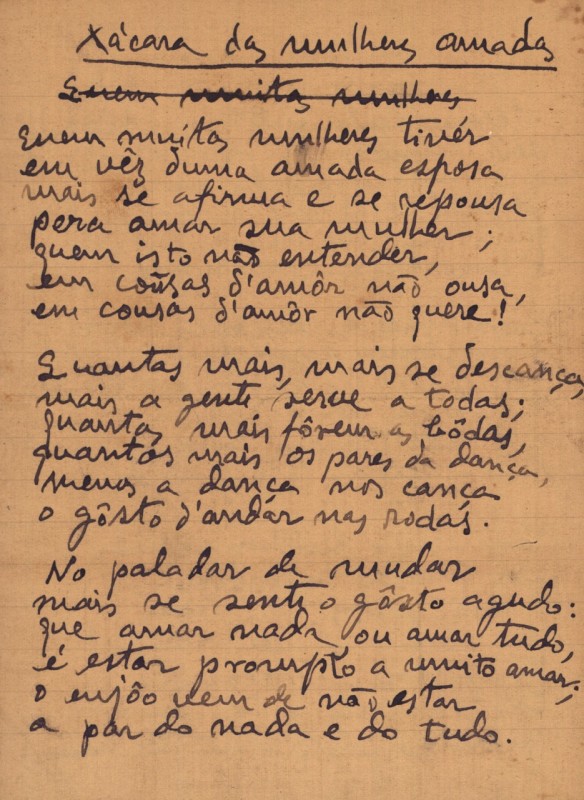 Xácara das mulheres amadas
Quem muitas mulheres
Quem muitas mulheres tivér
em vêz duma amada esposa
mais se afirma e se repousa
pera amar sua mulher;
quem isto não entender,
em cousas d'amôr não ousa,
em cousas d'amôr não quere!
Quantas mais, mais se descança,
mais a gente serve a todas;
quantas mais fôrem as bôdas,
quantos mais os pares da dança,
menos a dança nos cança
o gôsto d'andár nas rodas.
No paladar de mudar
mais se sente o gôsto agudo:
que amar nada ou amar tudo,
é estar prompto a muito amar;
o enjôo vem de não estar
a par do nada e do tudo.